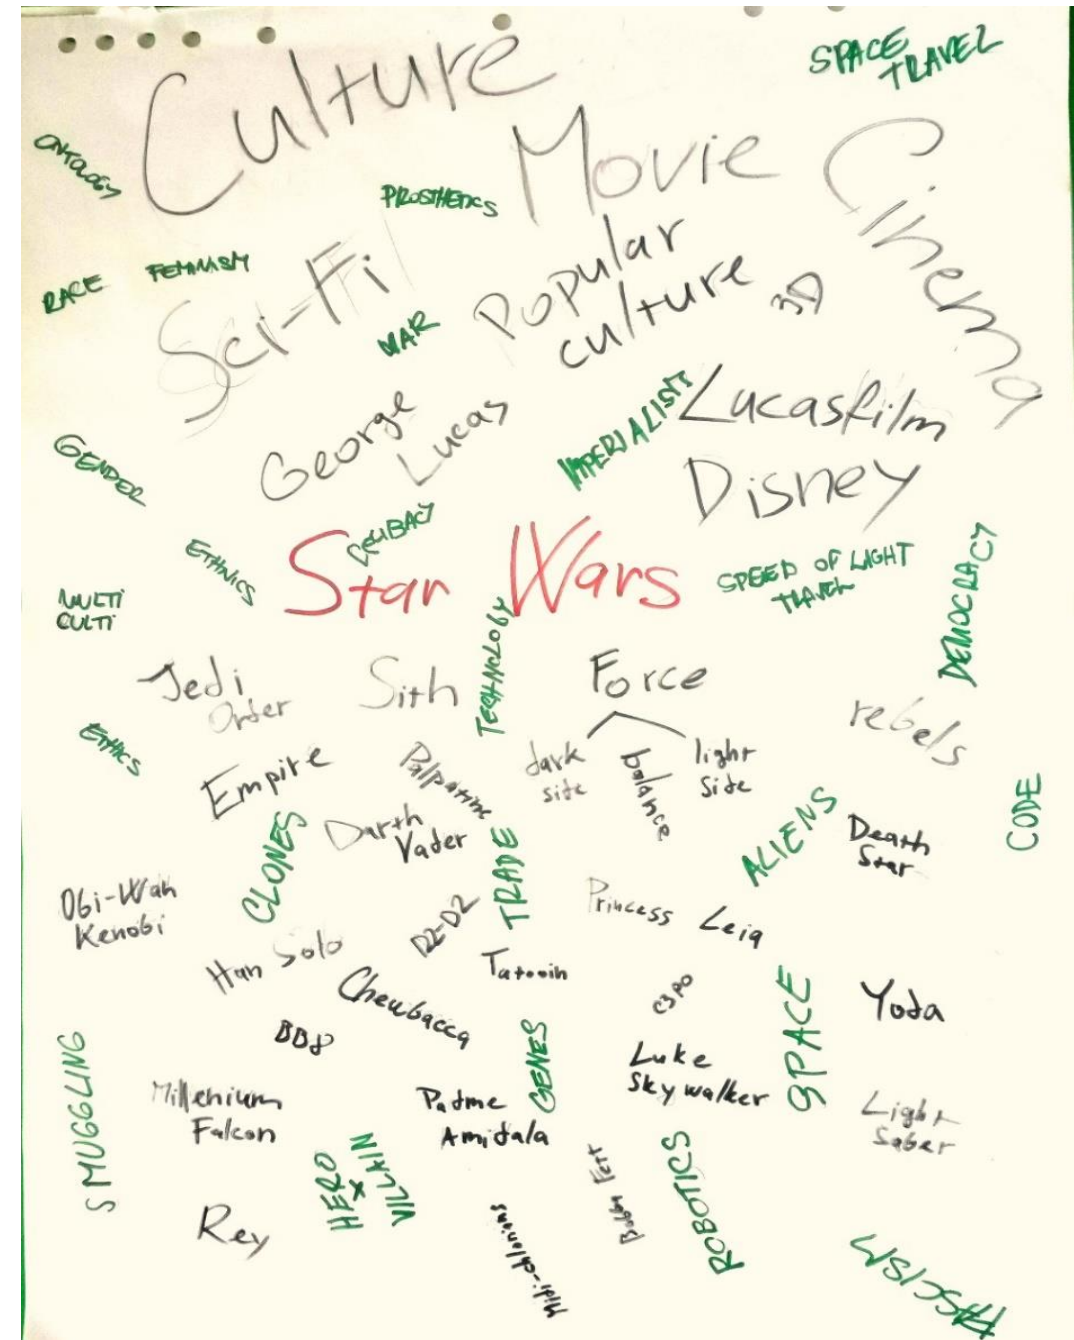 Culture
SPACE
TRAVEL
ONTOLOGY
Movie
Cinema
PROSTHETICS
RACE
FEMINISM
Sci-Fi
Popular
culture
3D
WAR
George
Lucas
IMPERIALISM
Lucasfilm
GENDER
Disney
ETHNICS
Star Wars
SPEED OF LIGHT
TRAVEL
DEMOCRACY
MULTI
CULTI
TECHNOLOGY
Jedi
Order
Sith
Force
rebels
ETHICS
Empire
Palpatine
dark
site
balance
light
Side
CODE
CLONES
Darth
Vader
TRADE
ALIENS
Death
Star
Obi-Wan
Kenobi
R2-D2
Princess Leia
Han Solo
Chewbacca
Tatooin
C3PO
SPACE
Yoda
BB8
GENES
Luke
Skywalker
SMUGGLING
Millenium
Falcon
Padme
Amidala
Light
Saber
HERO
x
VILLAIN
Fett
ROBOTICS
Rey
Midi-chlorians
FASCISM